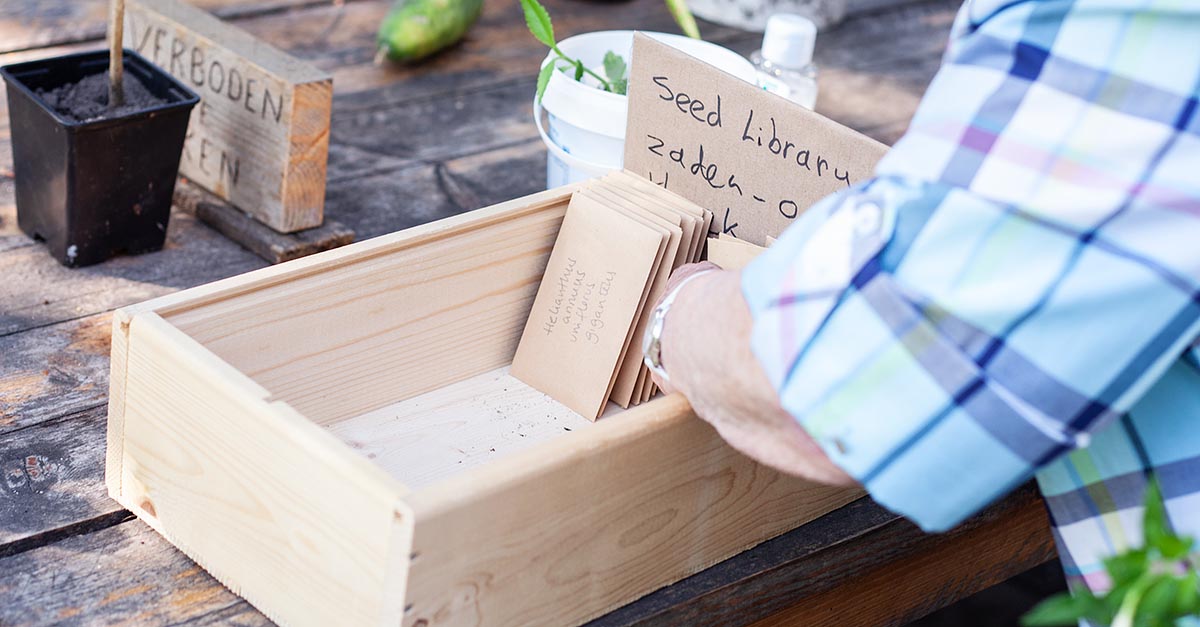 VERBODEN
Seed Library
zaden-o
Helianthus
annuus
uniflorus
giganteus